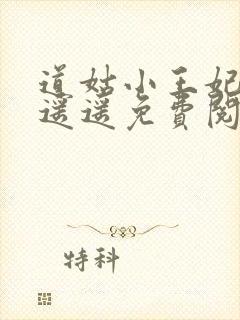 道姑小王妃
遥遥免费阅
特科